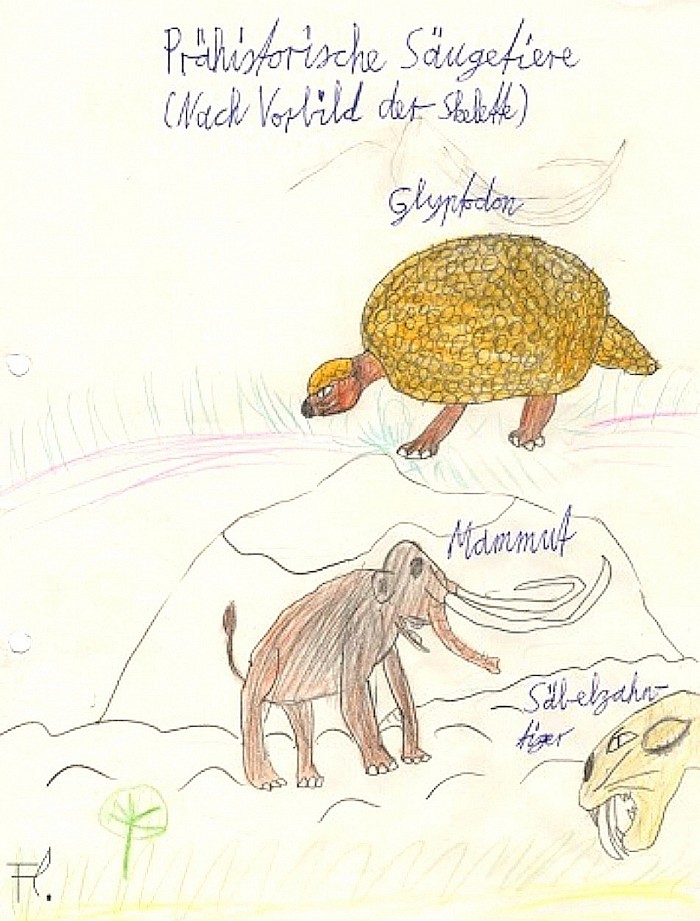 Prähistorische Säugetiere
(Nach Vorbild der Skelette)
Glyptodon
Mammut
Säbelzahn-
tiger